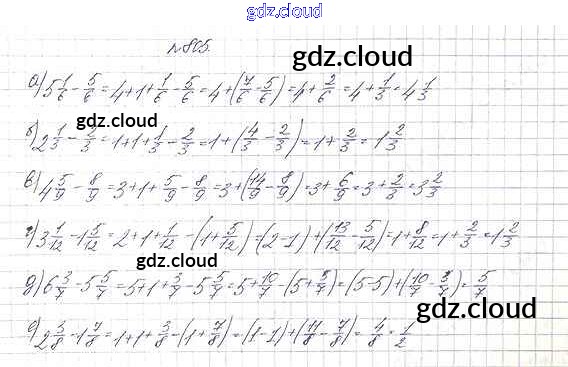 gdz.cloud
№805.
gdz.cloud
а) 5 1/6 - 5/6 = 4+1+ 1/6 - 5/6 = 4+(7/6 - 5/6) = 4+ 2/6 = 4+ 1/3 = 4 1/3
gdz.cloud
б) 2 1/3 - 2/3 = 1+1+ 1/3 - 2/3 = 1+(4/3 - 2/3) = 1+ 2/3 = 1 2/3
в) 4 5/9 - 8/9 = 3+1+ 5/9 - 8/9 = 3+(14/9 - 8/9) = 3+ 6/9 = 3+ 2/3 = 3 2/3
gdz.cloud
г) 3 1/12 - 1 5/12 = 2+1+ 1/12 - (1+ 5/12) = (2-1)+(13/12 - 5/12) = 1+ 8/12 = 1+ 2/3 = 1 2/3
gdz.cloud
д) 6 3/7 - 5 5/7 = 5+1+ 3/7 - 5 5/7 = 5+ 10/7 - (5+ 5/7) = (5-5)+(10/7 - 5/7) = 5/7
gdz.cloud
е) 2 3/8 - 1 7/8 = 1+1+ 3/8 - (1+ 7/8) = (1-1)+(11/8 - 7/8) = 4/8 = 1/2
gdz.cloud